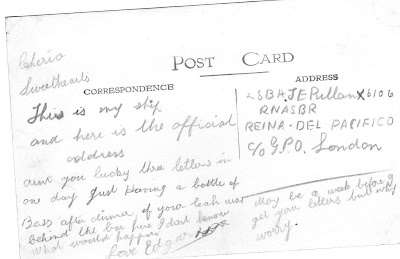 Cherio
Sweethearts
POST CARD
CORRESPONDENCE
ADDRESS
This is my ship
and here is the official
address
aint you lucky three letters in
one day Just having a bottle of
Bass after dinner, if your leah was
behind the bar here I dont know
what would happen
Love Edgar
LSBA JE Pullan X6106
RNASBR
REINA-DEL PACIFICO
C/o G.P.O. London
May be a week before I
get your letters but why
worry.